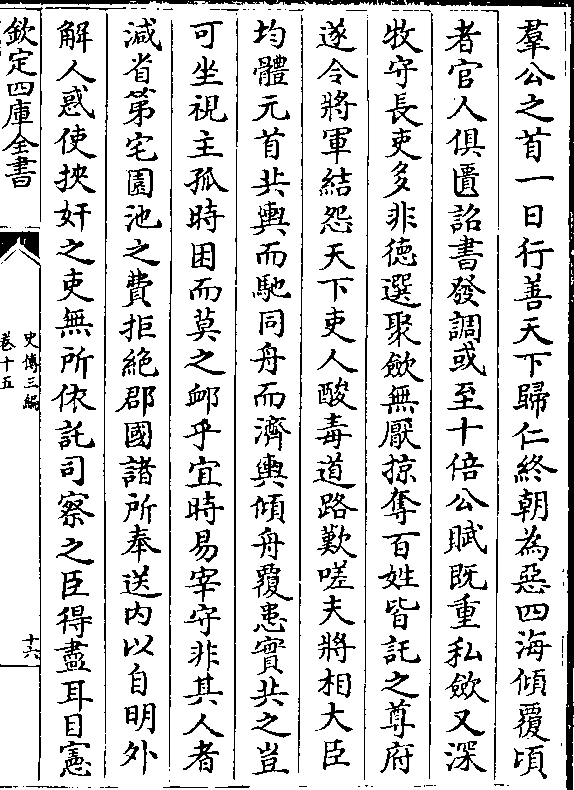 羣公之首一日行善天下歸仁終朝為惡四海傾覆頃
者官人俱匱詔書發調或至十倍公賦既重私斂又深
牧守長吏多非徳選聚斂無厭掠奪百姓皆託之尊府
遂令將軍結怨天下吏人酸毒道路歎嗟夫將相大臣
均體元首共輿而馳同舟而濟輿傾舟覆患實共之豈
可坐視主孤時困而莫之䘏乎宜時易宰守非其人者
減省第宅園池之費拒絶郡國諸所奉送内以自明外
解人惑使挾奸之吏無所依託司察之臣得盡耳目憲
欽定四庫全書
史傳三編
卷十五
十六